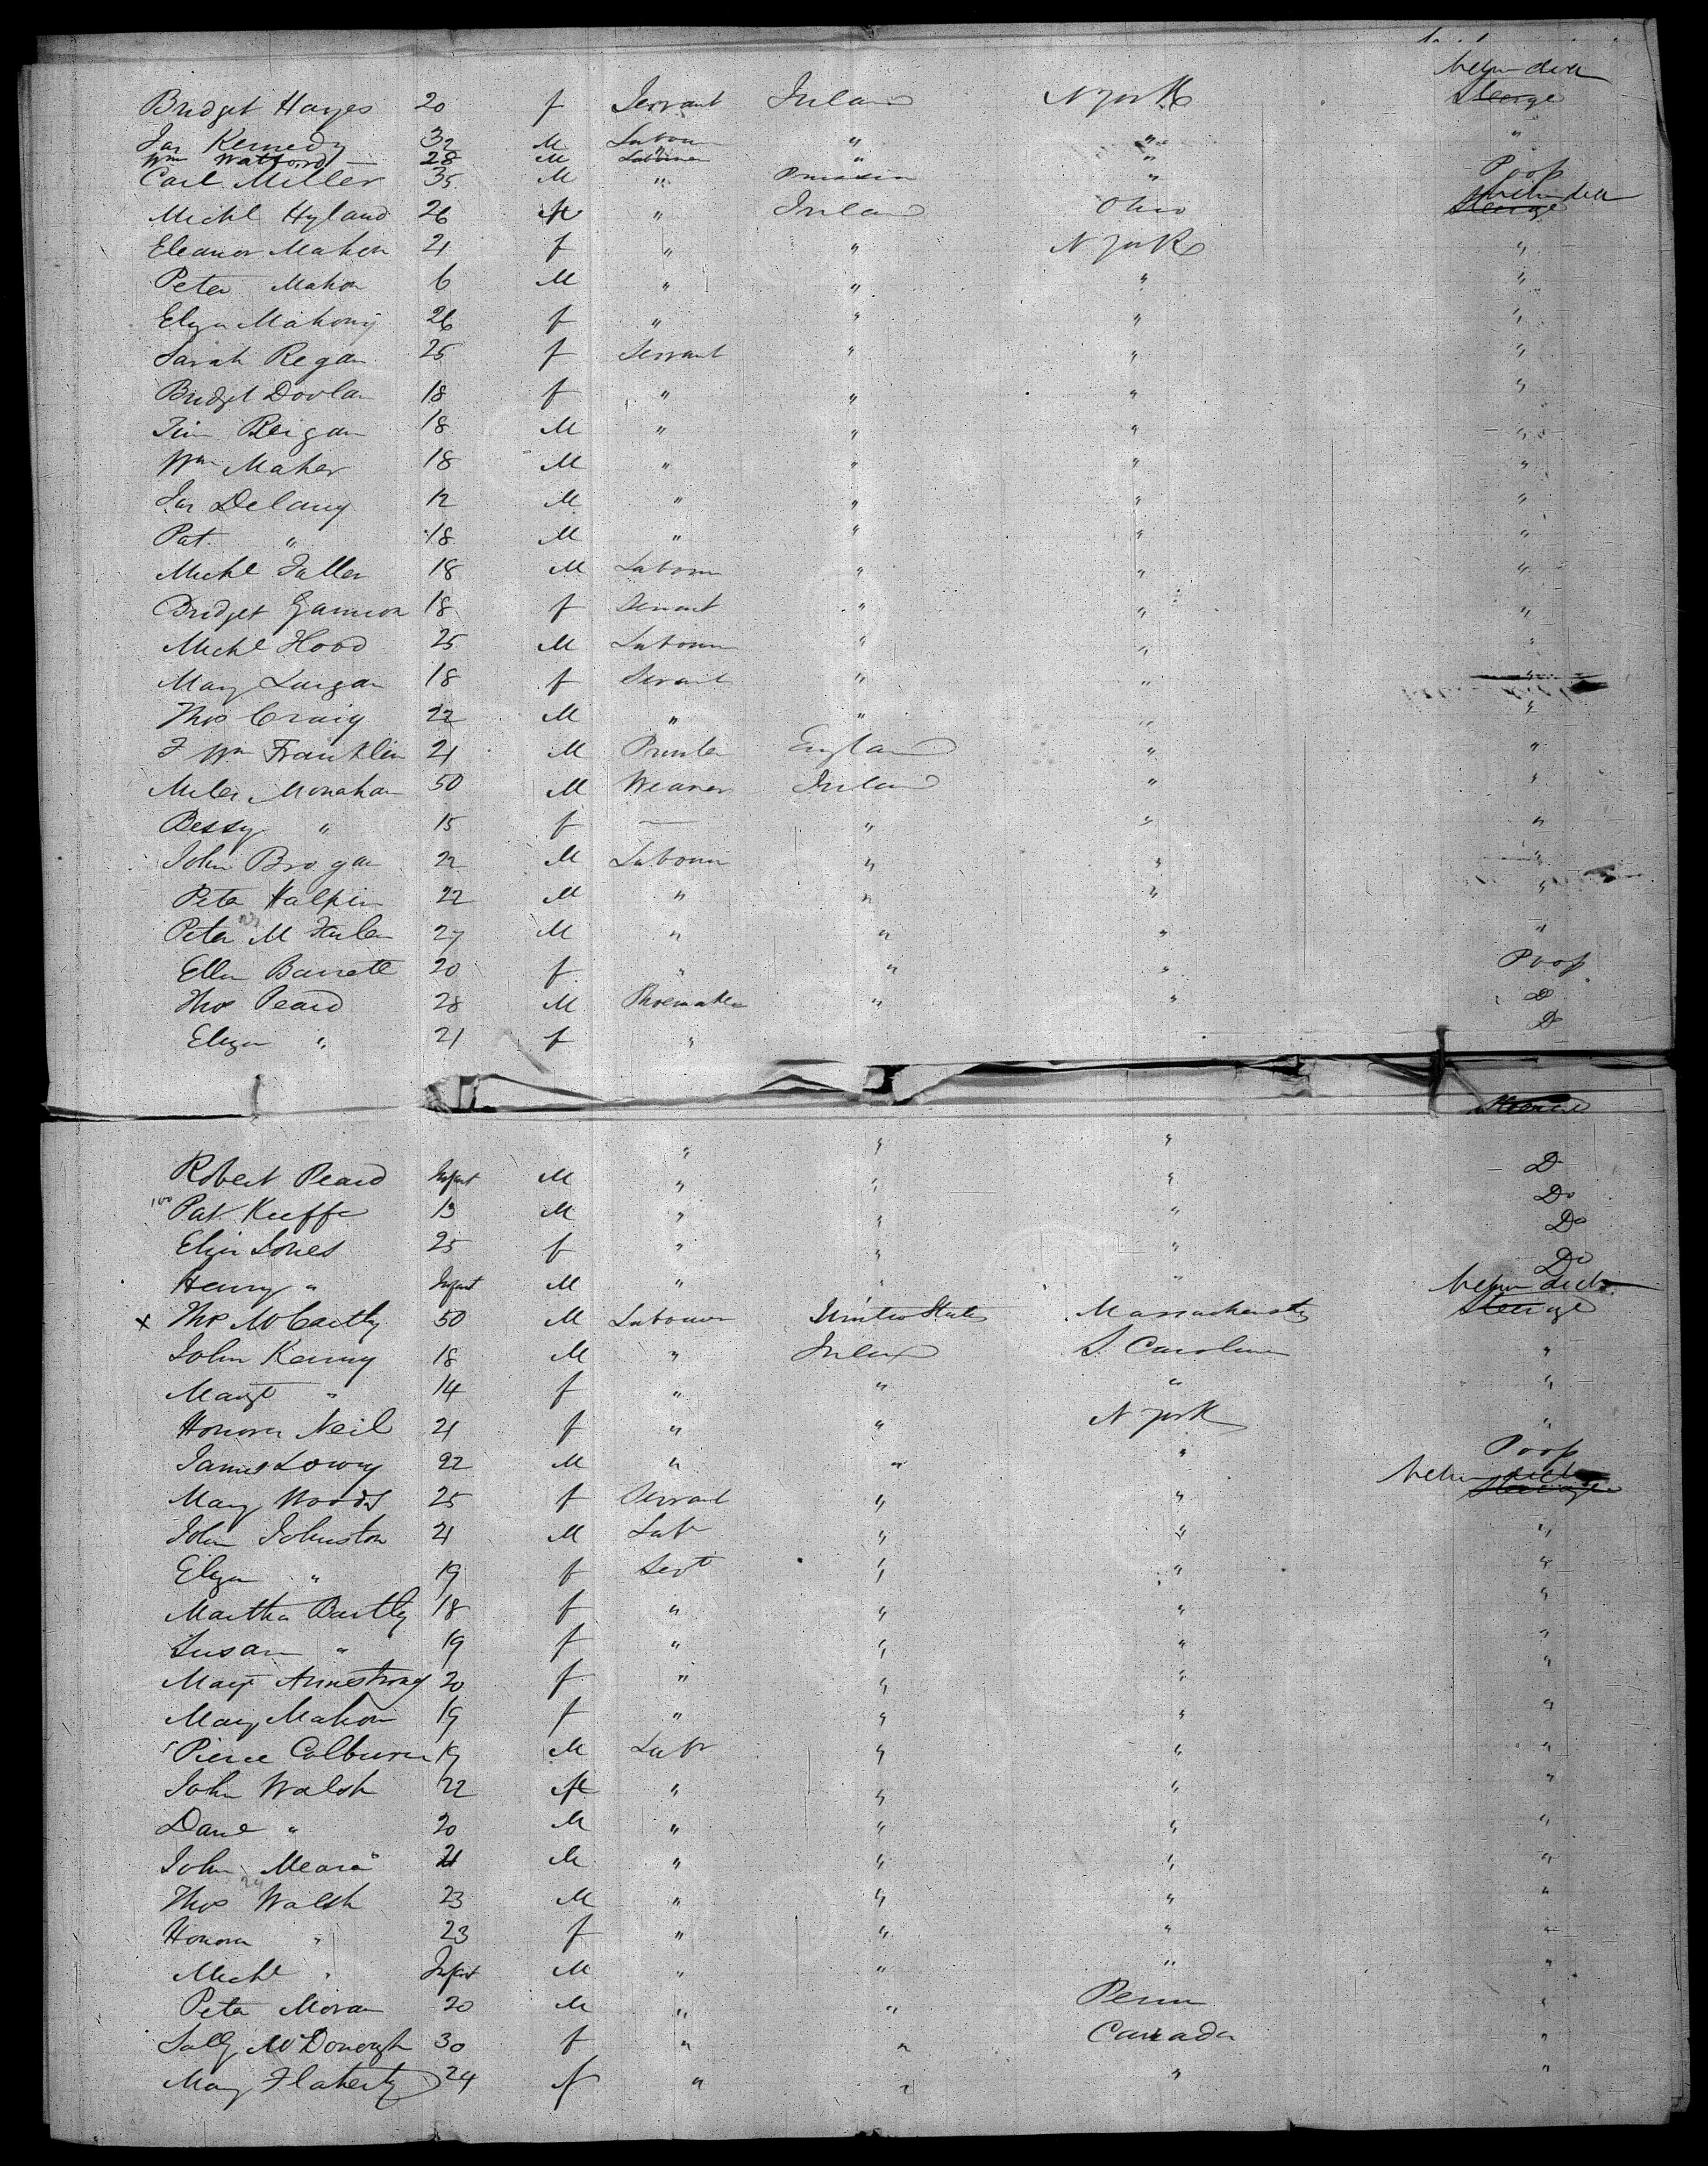 between decks
Bridget Hayes 20 f Servant Ireland N York Steerage
Jas Kennedy 32 M Labour " " "
Wm Watford — 28 M Labourer " "
Carl Miller 35 M " Prussia " Poop
between decks
Michl Hyland 26 M " Ireland Ohio Steerage
Eleanor Mahon 21 f " " N York "
Peter Mahon 6 M " " " "
Eliza Mahony 26 f " " " "
Sarah Regan 25 f Servant " " "
Bridget Dovlan 18 f " " " "
Tim Reigan 18 M " " " "
Wm Maher 18 M " " " "
Jas Delany 12 M " " " "
Pat " 18 M " " " "
Michl Faller 18 M Labour " " "
Bridget Gannon 18 f Servant " " "
Michl Hood 25 M Labour " " "
Mary Lurgan 18 f Servant " " "
Thos Craig 22 M " " " "
J Wm Franklin 21 M Printer England " "
Miles Monahan 50 M Weaver Ireland " "
Bessy " 15 f — " " "
John Brogan 22 M Labour " " "
Peter Halpin 22 M " " " "
Peter M 27 M " " " "
Ellen Barrett 20 f " " " Poop
Thos Peard 28 M Shoemaker " " Do
Eliza " 21 f " Do
Steerage
" " "
Robert Peard Infant M " " " Do
100 Pat Keeffe 13 M " " " Do
Eliza Jones 25 f " " " Do
Henry " Infant M " " " Do
between decks
x Thos McCarthy 50 M Labourer United States Massachusetts Steerage
John Kenny 18 M " Ireland S. Carolina "
Margt " 14 f " " " "
Honora Neil 21 f " " N York "
James Lowry 22 M " " " Poop
between decks
Mary Woods 25 f Servant " " Steerage
John Johnston 21 M Labr " " "
Eliza " 19 f Servt " " "
Martha Bartley 18 f " " " "
Susan " 19 f " " " "
Margt Armstrong 20 f " " " "
Mary Mahon 19 f " " " "
Pierce Colburn 19 M Labr " " "
John Walsh 22 M " " " "
Danl " 20 M " " " "
John Meara 21 M " " " "
Thos Walsh 23 M " " " "
Honora " 23 f " " " "
Michl " Infant M " " " "
Peter Moran 20 M " " Penn "
Sally McDonough 30 f " " Canada "
Mary Flaherty 24 f " " " "